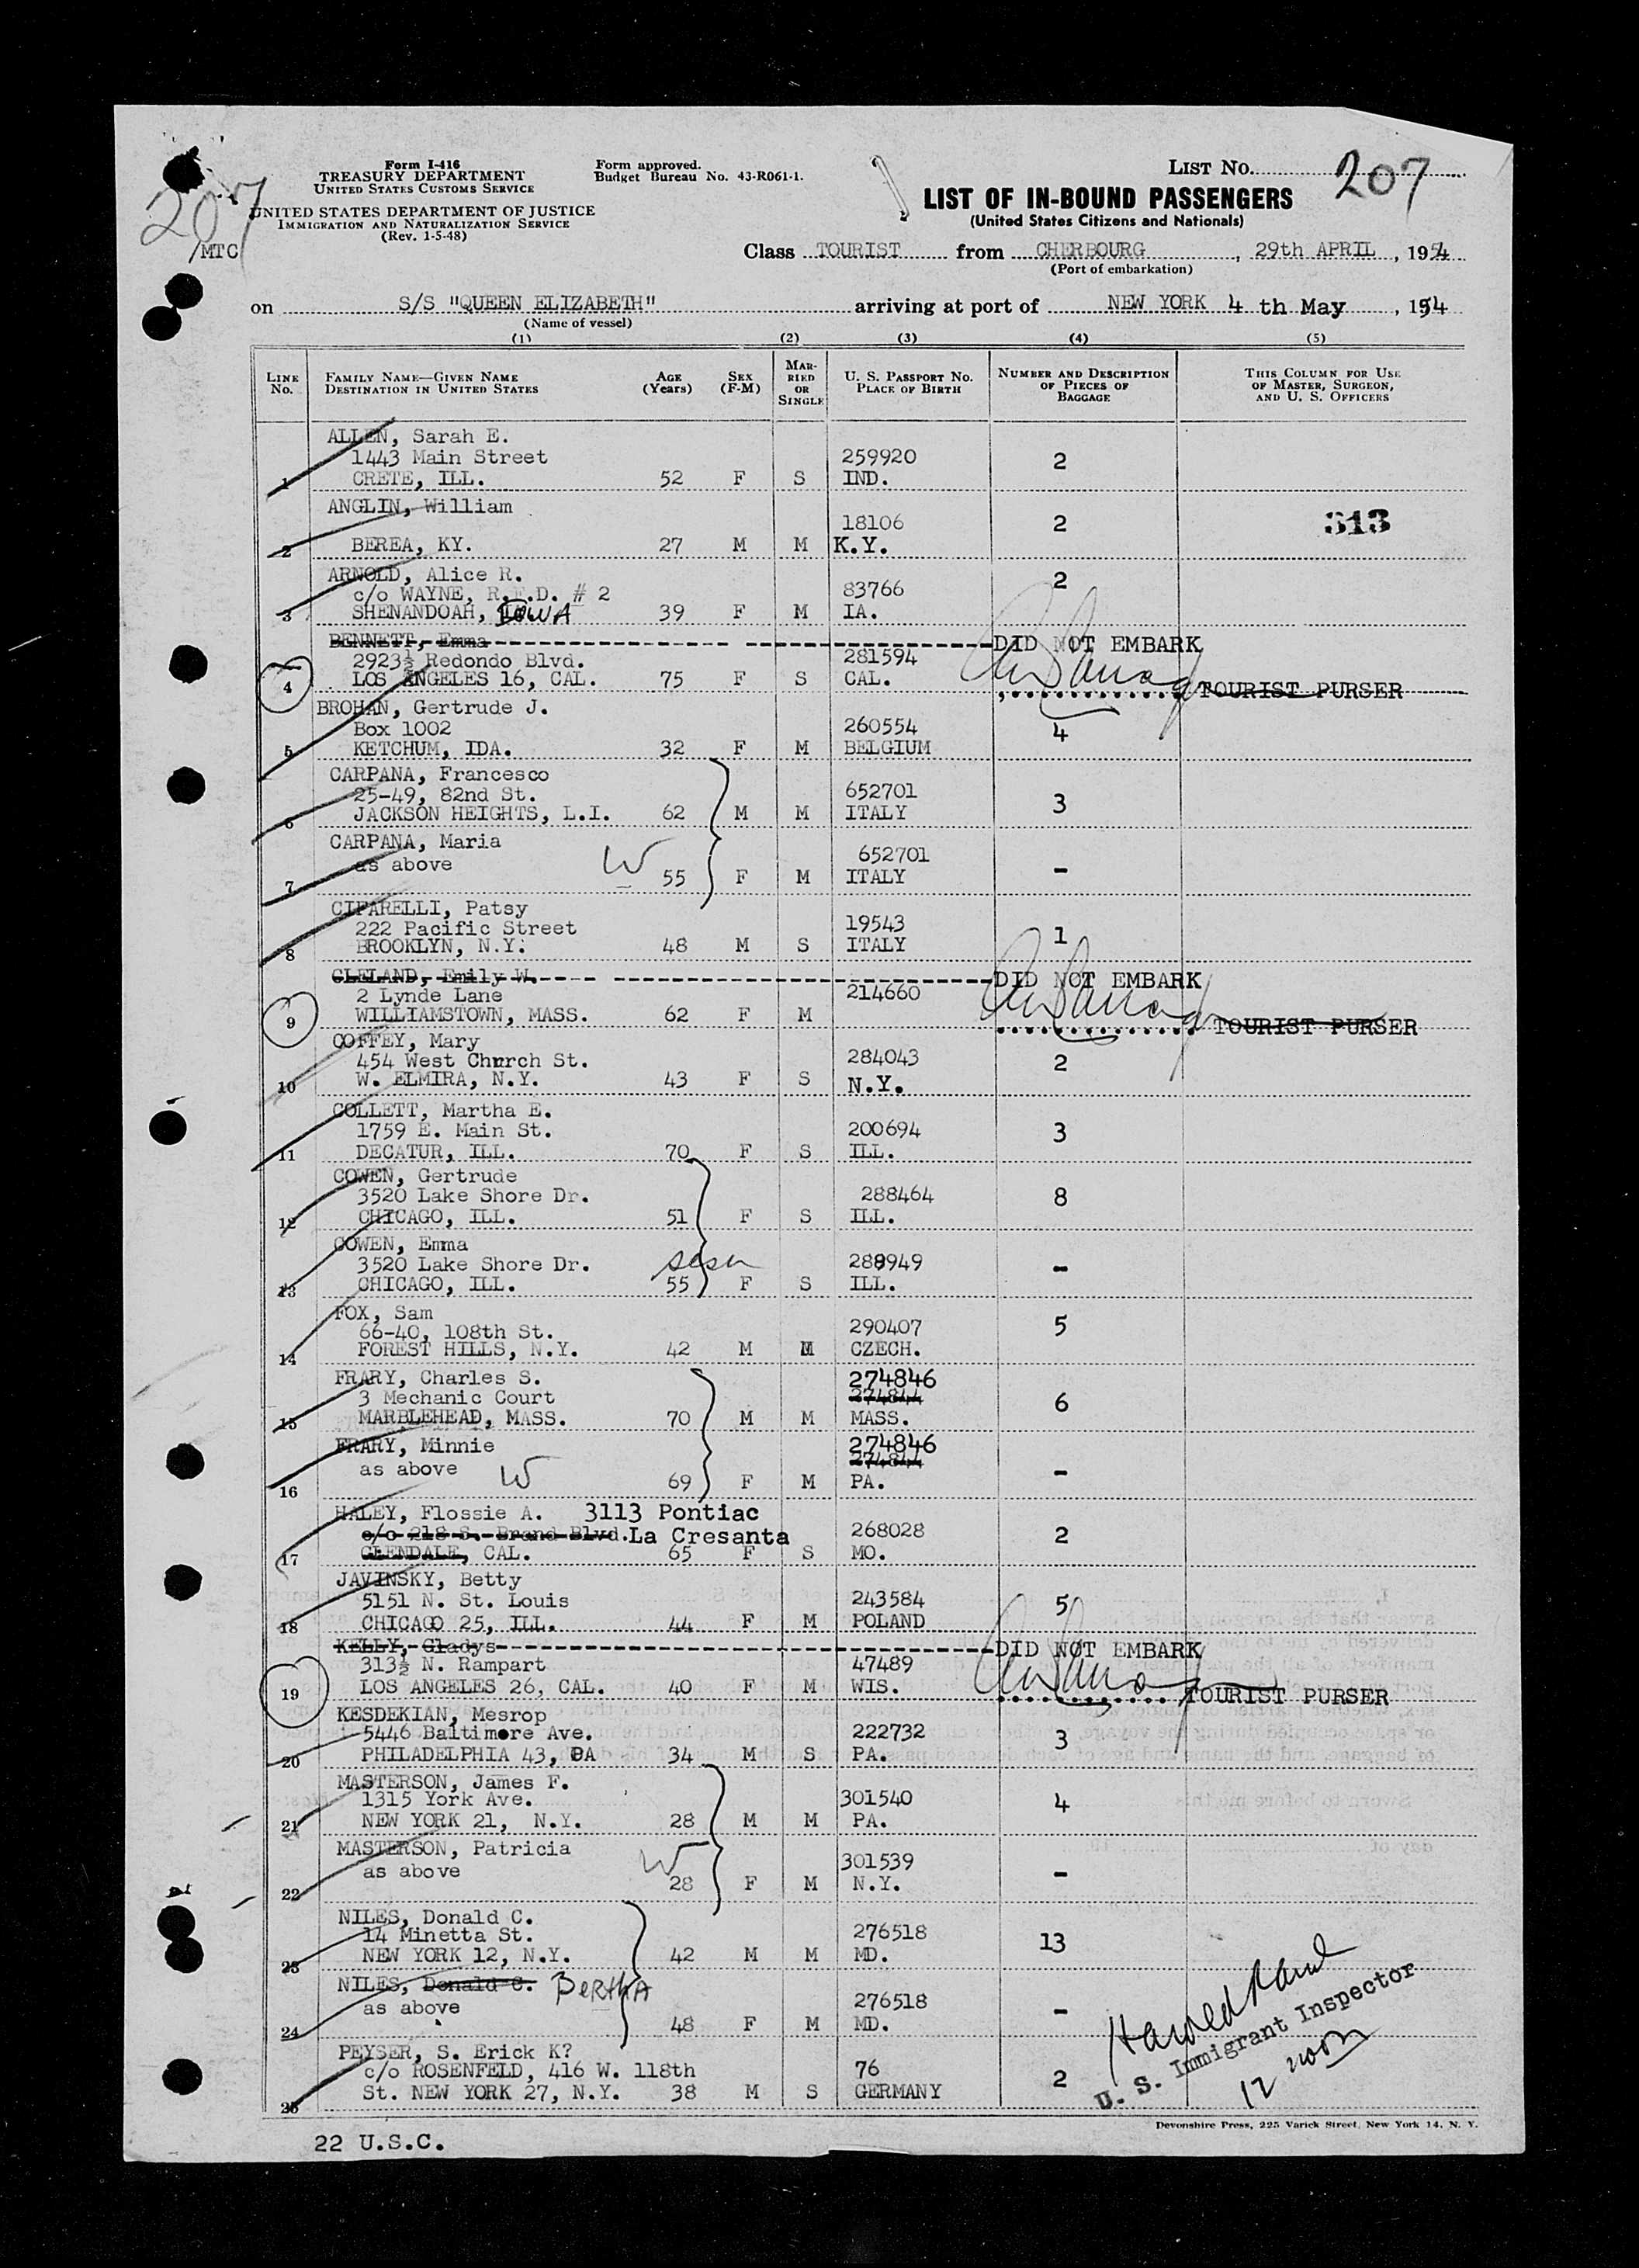 Form I-416
TREASURY DEPARTMENT
UNITED STATES CUSTOMS SERVICE
UNITED STATES DEPARTMENT OF JUSTICE
IMMIGRATION AND NATURALIZATION SERVICE
(Rev. 1-5-48)
207
/MTC
Form approved.
Budget Bureau No. 43-R061-1.
LIST NO. 207
LIST OF IN-BOUND PASSENGERS
(United States Citizens and Nationals)
Class TOURIST from CHERBOURG, 29th APRIL, 1954
(Port of embarkation)
on S/S "QUEEN ELIZABETH" arriving at port of NEW YORK 4 th May, 1954
(Name of vessel)
(1) (2) (3) (4) (5)
LINE NO. FAMILY NAME—GIVEN NAME DESTINATION IN UNITED STATES AGE (Years) SEX (F-M) MARRIED OR SINGLE U. S. PASSPORT NO. PLACE OF BIRTH NUMBER AND DESCRIPTION OF PIECES OF BAGGAGE THIS COLUMN FOR USE OF MASTER, SURGEON, AND U. S. OFFICERS
ALLEN, Sarah E.
1443 Main Street 259920 2
1 CRETE, ILL. 52 F S IND.
ANGLIN, William
18106 2 313
2 BEREA, KY. 27 M M K.Y.
ARNOLD, Alice R. 2
c/o WAYNE, R.F.D. # 2 83766
3 SHENANDOAH, IOWA 39 F M IA.
BENNETT, Emma DID NOT EMBARK
2923½ Redondo Blvd. 281594
4 LOS ANGELES 16, CAL. 75 F S CAL. TOURIST PURSER
BROHAN, Gertrude J.
Box 1002 260554 4
5 KETCHUM, IDA. 32 F M BELGIUM
CARPANA, Francesco
25-49, 82nd St. 652701 3
6 JACKSON HEIGHTS, L.I. 62 M M ITALY
CARPANA, Maria
as above W 652701 -
7 55 F M ITALY
CIFARELLI, Patsy
222 Pacific Street 19543 1
8 BROOKLYN, N.Y. 48 M S ITALY
CLELAND, Emily W. DID NOT EMBARK
2 Lynde Lane 214660
9 WILLIAMSTOWN, MASS. 62 F M TOURIST PURSER
COFFEY, Mary
454 West Church St. 284043 2
10 W. ELMIRA, N.Y. 43 F S N.Y.
COLLETT, Martha E.
1759 E. Main St. 200694 3
11 DECATUR, ILL. 70 F S ILL.
COWEN, Gertrude
3520 Lake Shore Dr. 288464 8
12 CHICAGO, ILL. 51 F S ILL.
COWEN, Emma
3520 Lake Shore Dr. 288949 -
13 CHICAGO, ILL. 55 F S ILL.
FOX, Sam
66-40, 108th St. 290407 5
14 FOREST HILLS, N.Y. 42 M M CZECH.
FRARY, Charles S. 274846
3 Mechanic Court 274844 6
15 MARBLEHEAD, MASS. 70 M M MASS.
FRARY, Minnie 274846
as above W 274844 -
16 69 F M PA.
HALEY, Flossie A. 3113 Pontiac
c/o 218 S. Brand Blvd. La Cresanta 268028 2
17 GLENDALE, CAL. 65 F S MO.
JAVINSKY, Betty
5151 N. St. Louis 243584 5
18 CHICAGO 25, ILL. 44 F M POLAND
KELLY, Gladys DID NOT EMBARK
313½ N. Rampart 47489
19 LOS ANGELES 26, CAL. 40 F M WIS. TOURIST PURSER
KESDEKIAN, Mesrop
5446 Baltimore Ave. 222732 3
20 PHILADELPHIA 43, PA 34 M S PA.
MASTERSON, James F.
1315 York Ave. 301540 4
21 NEW YORK 21, N.Y. 28 M M PA.
MASTERSON, Patricia
as above W 301539 -
22 28 F M N.Y.
NILES, Donald C.
14 Minetta St. 276518 13
23 NEW YORK 12, N.Y. 42 M M MD.
NILES, Donald C. BERTHA
as above 276518 -
24 48 F M MD.
PEYSER, S. Erick K?
c/o ROSENFELD, 416 W. 118th 76 2
25 St. NEW YORK 27, N.Y. 38 M S GERMANY
Harold
U. S. Immigrant Inspector
12 noon
Devonshire Press, 225 Varick Street, New York 14, N. Y.
22 U.S.C.